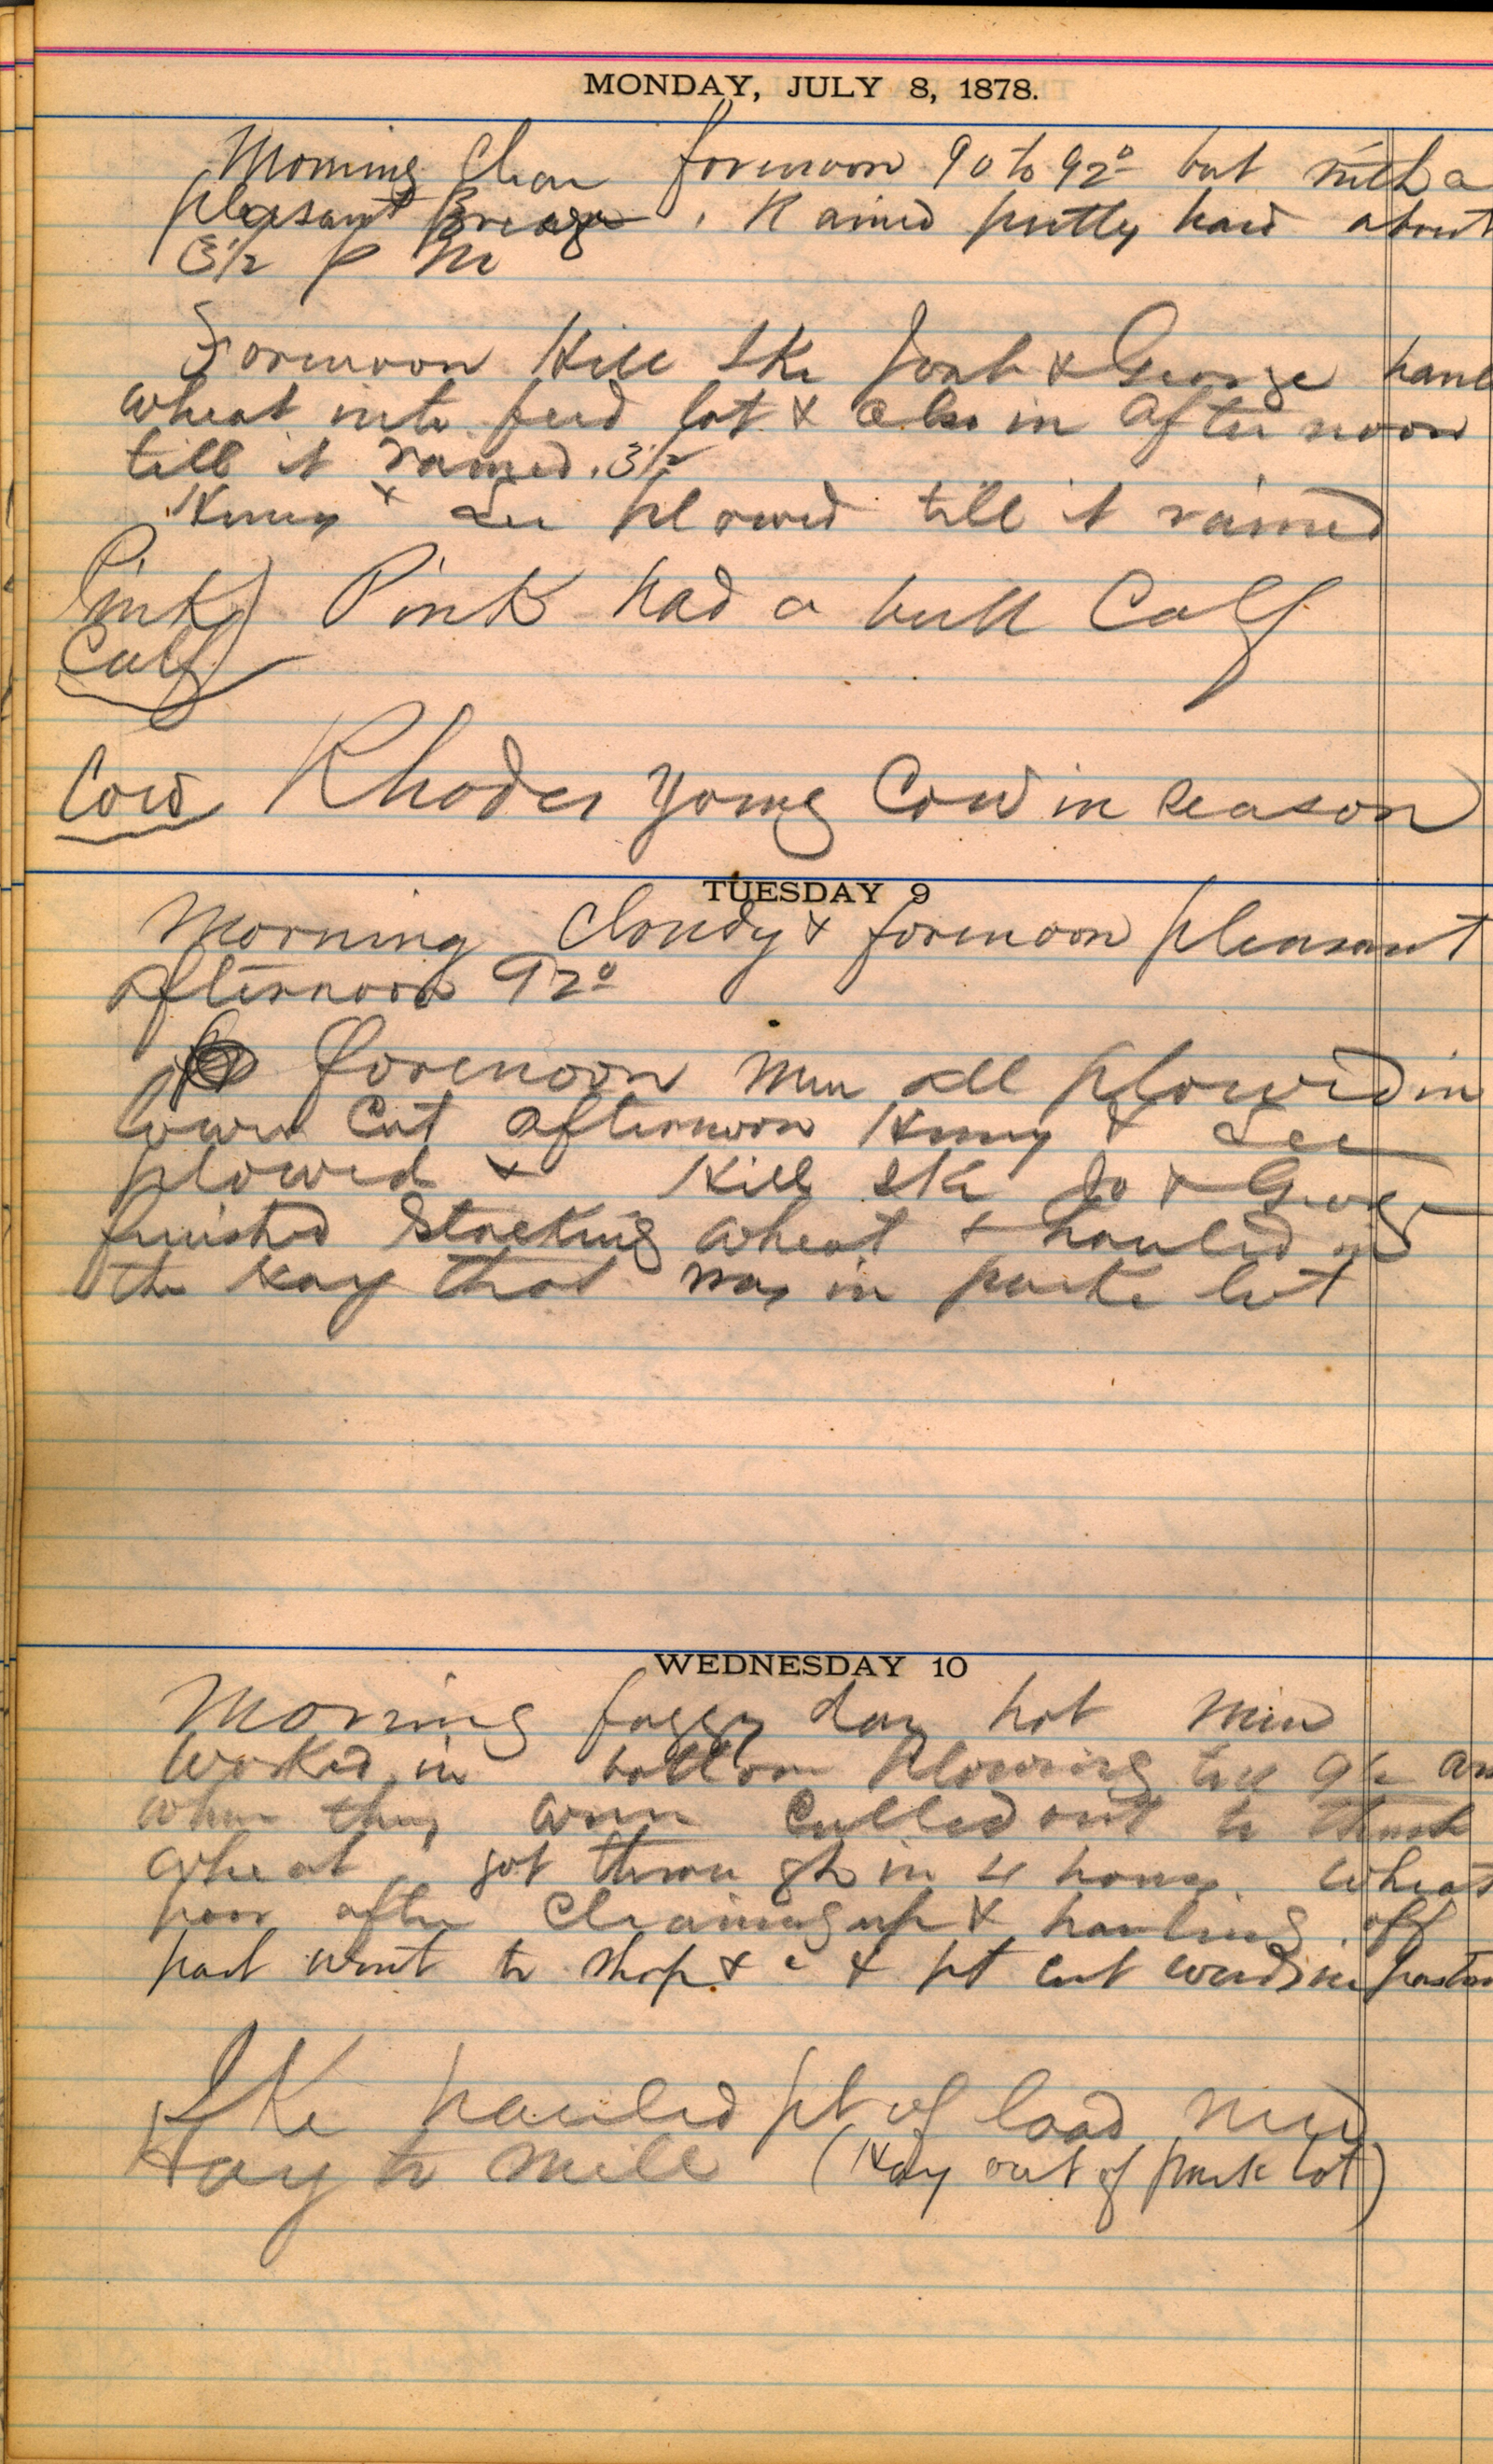 MONDAY, JULY 8, 1878.
Morning Clear forenoon 90 to 92° but with a
pleasant Breeze . Rained pretty hard about
3½ P M
Forenoon Hill Ike & George haul
wheat into feed lot & also in afternoon
till it rained. 3½
Henry & Lee plowed till it rained
Pink Calf
Pink had a bull Calf
Cow Rhodes young Cow in season
TUESDAY 9
Morning Cloudy & forenoon pleasant
afternoon 92°
forenoon Men all plowed in
lower Cut afternoon Henry & Lee
plowed & Hill Ike Jo & George
finished Stacking wheat & hauled in
the Hay that was in park lot
WEDNESDAY 10
Morning foggy day hot Men
worked in bottom plowing till 9½ am
when they were Called out to thrash
wheat got through in 4 hours. wheat
poor after Cleaning up & hauling off
part went to shop & c & pt cut weeds in pasture
Ike hauled pt of load
Hay to Mill (Hay out of park lot)